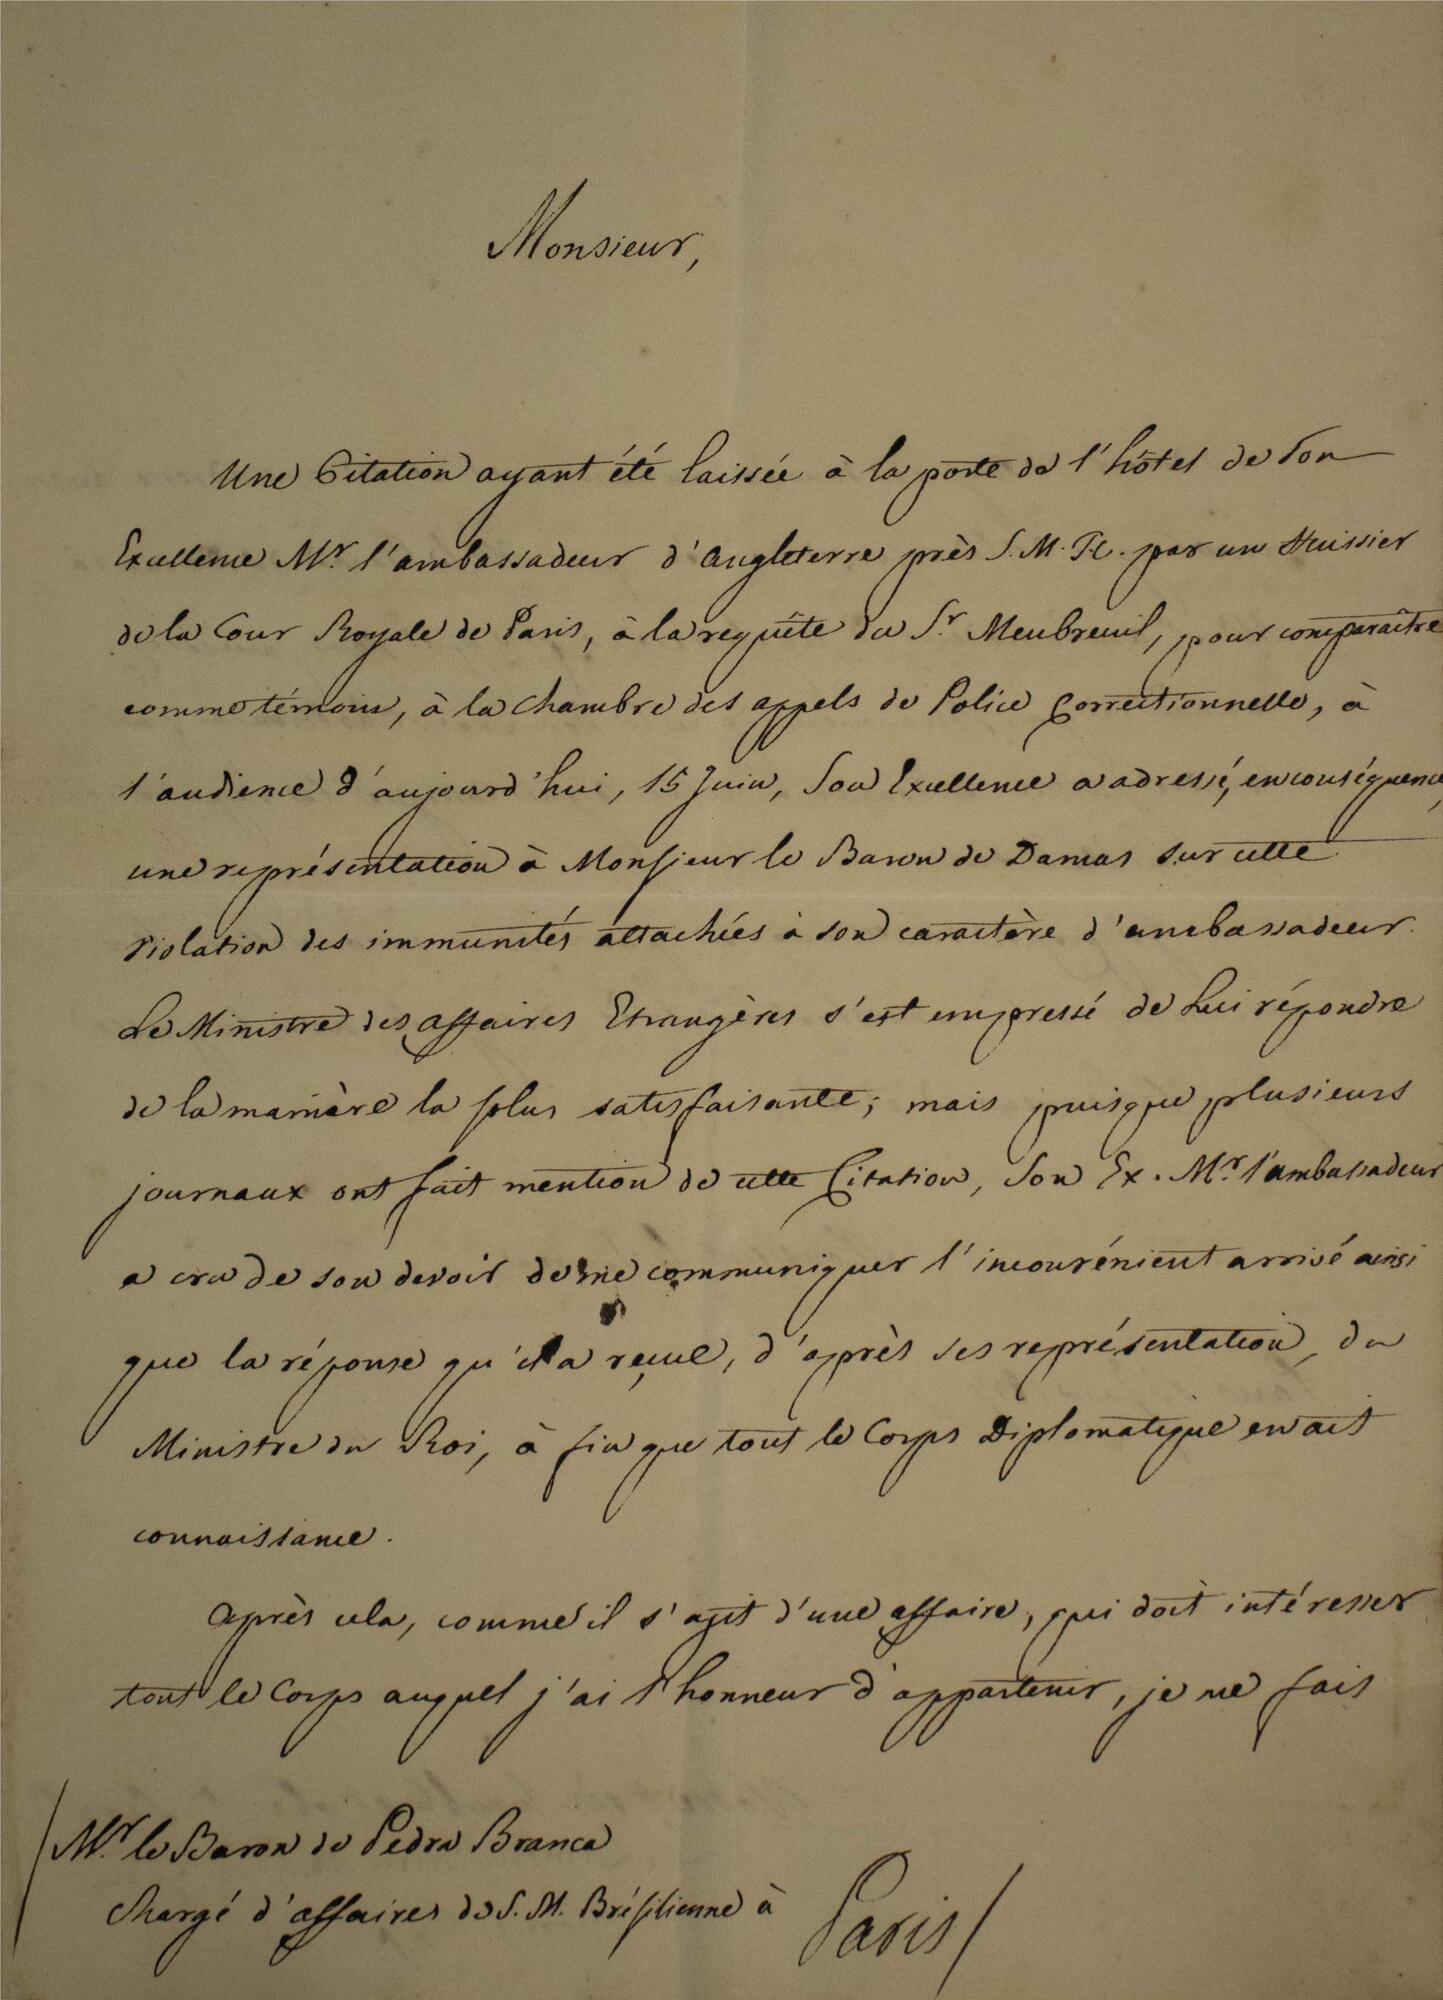 Monsieur,
Une Citation ayant été laissée à la porte de l'hôtel de Son
Excellence Mr. l'ambassadeur d'Angleterre près S. M. T. C. par un Huissier
de la Cour Royale de Paris, à la requête du Sr. Meubreuil, pour comparaître
comme témoin, à la Chambre des appels de Police Correctionnelle, à
l'audience d'aujourd'hui, 15 Juin, Son Excellence a adressé, en conséquence,
une représentation à Monsieur le Baron de Damas sur cette
violation des immunités attachées à son caractère d'ambassadeur.
Le Ministre des affaires Etrangères s'est empressé de Lui répondre
de la manière la plus satisfaisante; mais puisque plusieurs
journaux ont fait mention de cette Citation, Son Ex. Mr. l'ambassadeur
a cru de son devoir de me communiquer l'inconvénient arrivé ainsi
que la réponse qu'il a reçue, d'après ses représentation, du
Ministre du Roi, à fin que tout le Corps Diplomatique en ait
connaissance.
Après cela, comme il s'agit d'une affaire, qui doit intéresser
tout le Corps auquel j'ai l'honneur d'appartenir, je me fais
Mr. le Baron de Pedra Branca
Chargé d'affaires de S. M. Brésilienne à
Paris